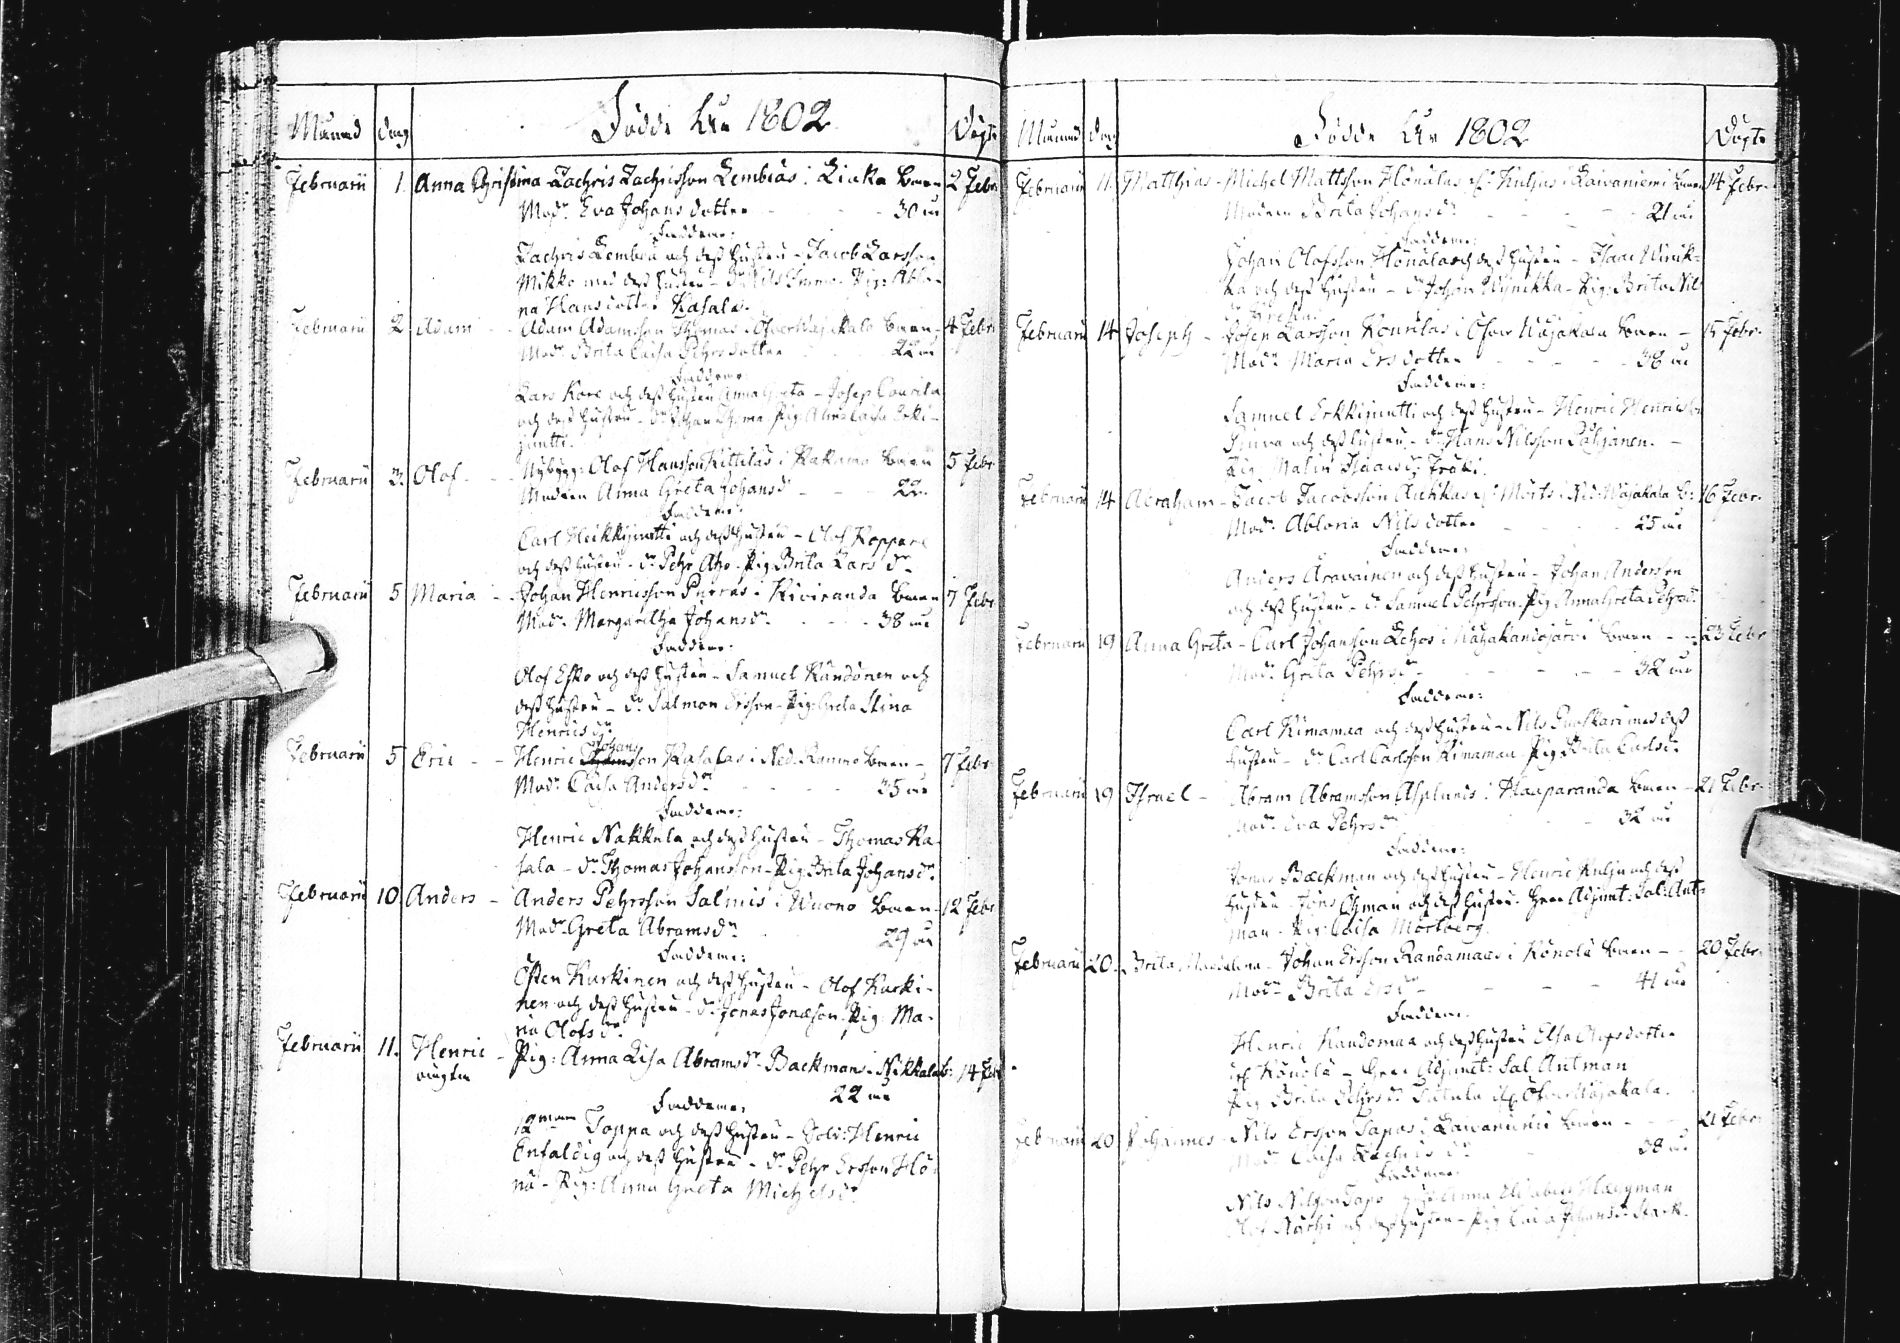 Månad dag Födde År 1802 Döpte
Februarii 1. Anna Christina - Zachris Zachrisson Lembias i Liaka barn 2 Febr.
Modr. Eva Johans dotter - - - 30 år
Faddrar:
Zachris Lembia och dess hustru - Jacob Larsson
Mikko med dess hustru - Pig: Ablo-
na Hans dotter Kasala.
Februarii 2 Adam - Adam Adamsson Thomas i Öfver Wojakala barn - 4 Febr.
Modr. Brita Caisa Pehrs dotter 22 år
Faddrar:
Lars Kare och dess hustru Anna Greta - Josep Conrila
och dess hustru - Dr. Johan - Pig. Caisa Erki-
juntti.
Februarii 3. Olof - - Nybygg: Olof Hansson Kittilas i Kakamo barn 5 Febr.
Modren Anna Greta Johansdr. - - 22.
Faddrar:
Carl Heikkijuntti och dess hustru - Olof Koppare
och dess hustru - Dr. Pehr - Pig Brita Lars dr.
Februarii 5 Maria - Johan Henricsson Purras i Kiviranda barn 7 Febr.
Modr. Margaretha Johansdr. - - - 38 år
Faddrar:
Olof Esko och dess hustru - Samuel Kandonen och
dess hustru - Dr. Salmon Ersson - Pig: Greta Stina
Henricsdr.
Februarii 5 Eric - - Henric Johansson Kasalas i Ned. Raumo barn - 7 Febr.
Modr. Caisa Andersdr. - - - 35 år
Faddrar:
Henric Nakkula och dess hustru - Thomas Ka-
sala - Dr. Thomas Johansson - Pig: Brita Johansdr.
Februarii 10 Anders - Anders Pehrsson Salmis i Wuono barn - 12 Febr.
Modr. Greta Abramsdr. 29 år
Faddrar:
Östen Kurkinen och dess hustru - Olof Kurki-
nen och dess hustru - Dr. Jonas Jonæson. Pig: Ma-
ria Olofsdr.
Februarii 11. Henric - Pig: Anna Lisa Abramsdr. Backman i Nikkala b: 14 Febr.
oägta 22 år
Faddrar:
Toppa och dess hustru - Sold: Henric
Enfaldig och dess hustru - Dr. Pehr Ersson Hö-
nä - Pig: Anna Greta Michelsdr.
Månad dag Födde År 1802 Döpte
Februarii 11. Matthias - Michel Mattsson Hönälas el. Kuljus i Laivaniemi barn 14 Febr.
Modren Brita Johansdr. - - - 21 år
Faddrar:
Johan Olofsson Hönäla och dess hustru - Isaac Winik-
ka och dess hustru - Dr. Johan Wynikka - Pig: Brita Nils
Februarii 14 Joseph - Josep Larsson Konrilas i Öfver Wojakala barn - 15 Febr.
Modr. Maria Ers dotter - - - 38 år
Faddrar:
Samuel Erkkijuntti och dess hustru - Henric Henricsson
och dess hustru - Dr. Hans Nilsson Lahjanen. -
Pig Malin Isacsdr.
Februarii 14 Abraham - Jacob Jacobsson el. Mörts i Ned: Wojakala b: 16 Febr.
Modr. Ablona Nils dotter - - - 25 år
Faddrar:
Anders Aravainen och dess hustru - Johan Andersson
och dess hustru - Dr. Samuel Pehrsson. Pig Anna Greta Pehrsdr.
Februarii 19 Anna Greta - Carl Johansson Lehos i barn - - 23 Febr
Modr. Greta Pehrsdr. - - - 32 år
Faddrar:
Carl Kimamaa och dess hustru - Nils Puoskari med dess
hustru - Dr. Carl Carlsson Kimamaa Pig Brita Carlsdr.
Februarii 19 Israel - Abram Abramsson Asplunds i Haaparanda barn - 21 Febr.
Modr. Eva Pehrsdr. - 32 år
Faddrar:
Jonas Bæckman och dess hustru - Henric Kulju och dess
hustru - Jöns Öhman och dess hustru. Herr Adjunct: Sal: Ant-
man - Pig: Caisa Mörtberg.
Februarii 20. Brita Magdalena - Johan Ersson Randamaas i Könölä barn - - 20 Febr.
Modr. Brita Ersdr. - - - 41 år
Faddrar.
Henric Kandomaa och dess hustru Elsa Olofsdotter
ifr. Könölä - Herr Adjunct: Sal Antman
Pig Brita Pehrsdr. ifr. Öfver Wojakala.
Februarii 20 Johannes - Nils Ersson Sapos i Laivaniemi barn - - 21 Febr.
Modr. Caisa dr. 38 år
Faddrar:
Nils Nilsson Sapo hust. Anna Elisabeth Hægman
Olof och dess hustru - Pig Caisa Johansdr.